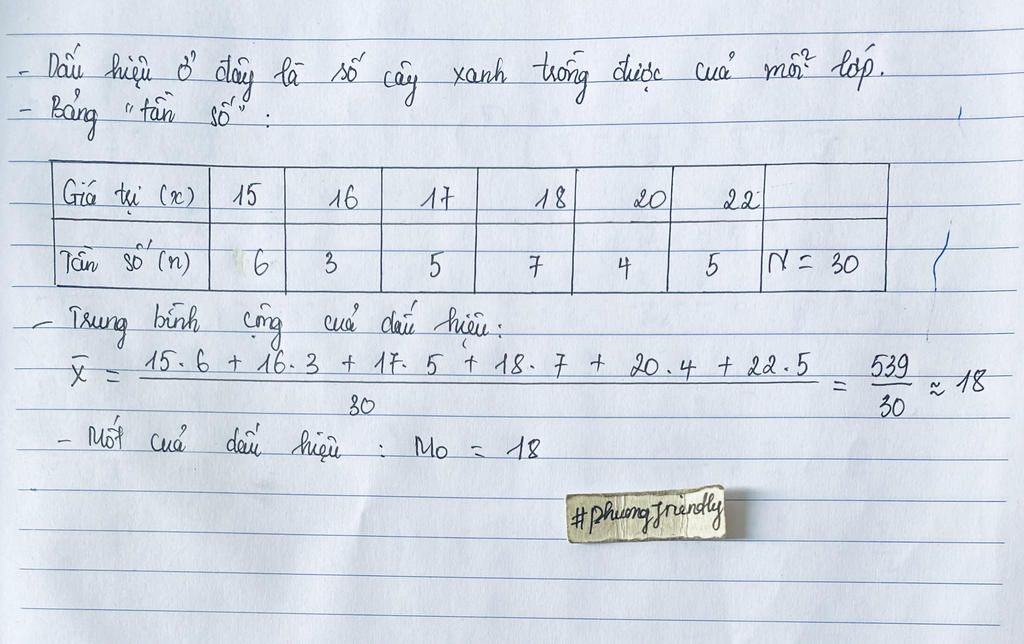 - Dấu hiệu ở đây là số cây xanh trồng được của mỗi lớp.
- Bảng "tần số" :
Giá trị (x) 15 16 17 18 20 22
Tần số (n) 6 3 5 7 4 5 N = 30
- Trung bình cộng của dấu hiệu:
x̄ = (15.6 + 16.3 + 17.5 + 18.7 + 20.4 + 22.5) / 30 = 539/30 ≈ 18
- Mốt của dấu hiệu : Mo = 18
#phuongfriendly